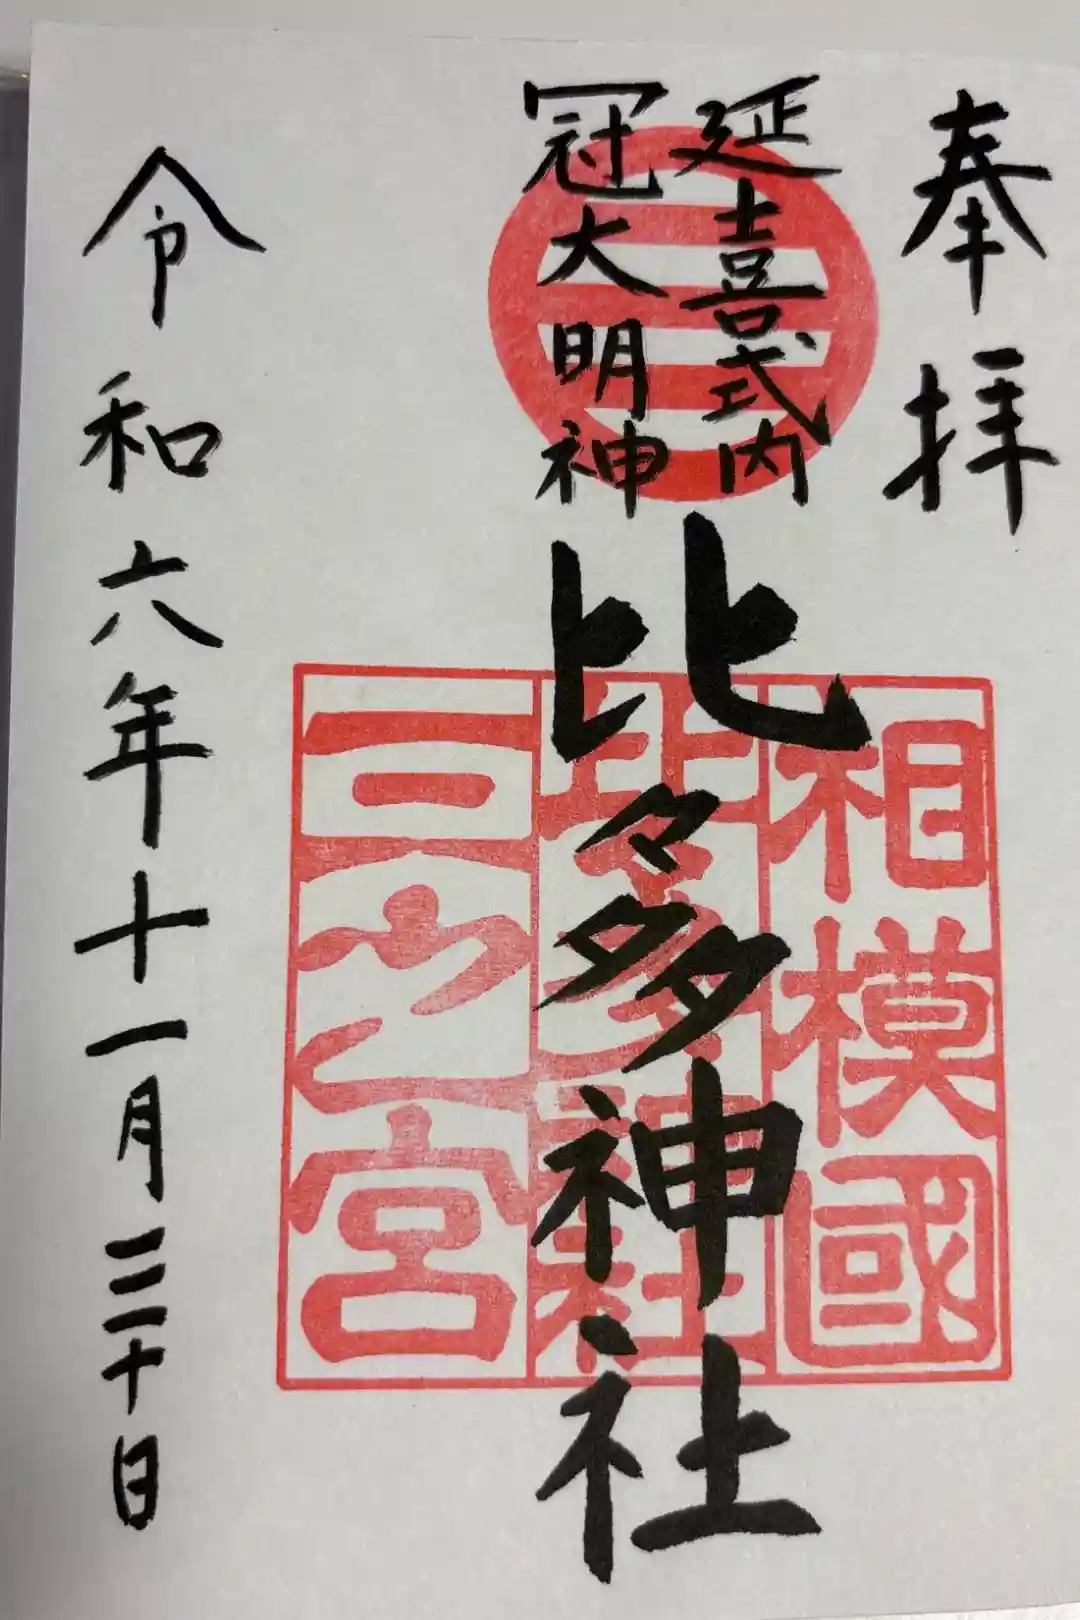 奉拝
延喜式内
冠大明神
比々多神社
相模國
三之宮
令和六年十一月三十日